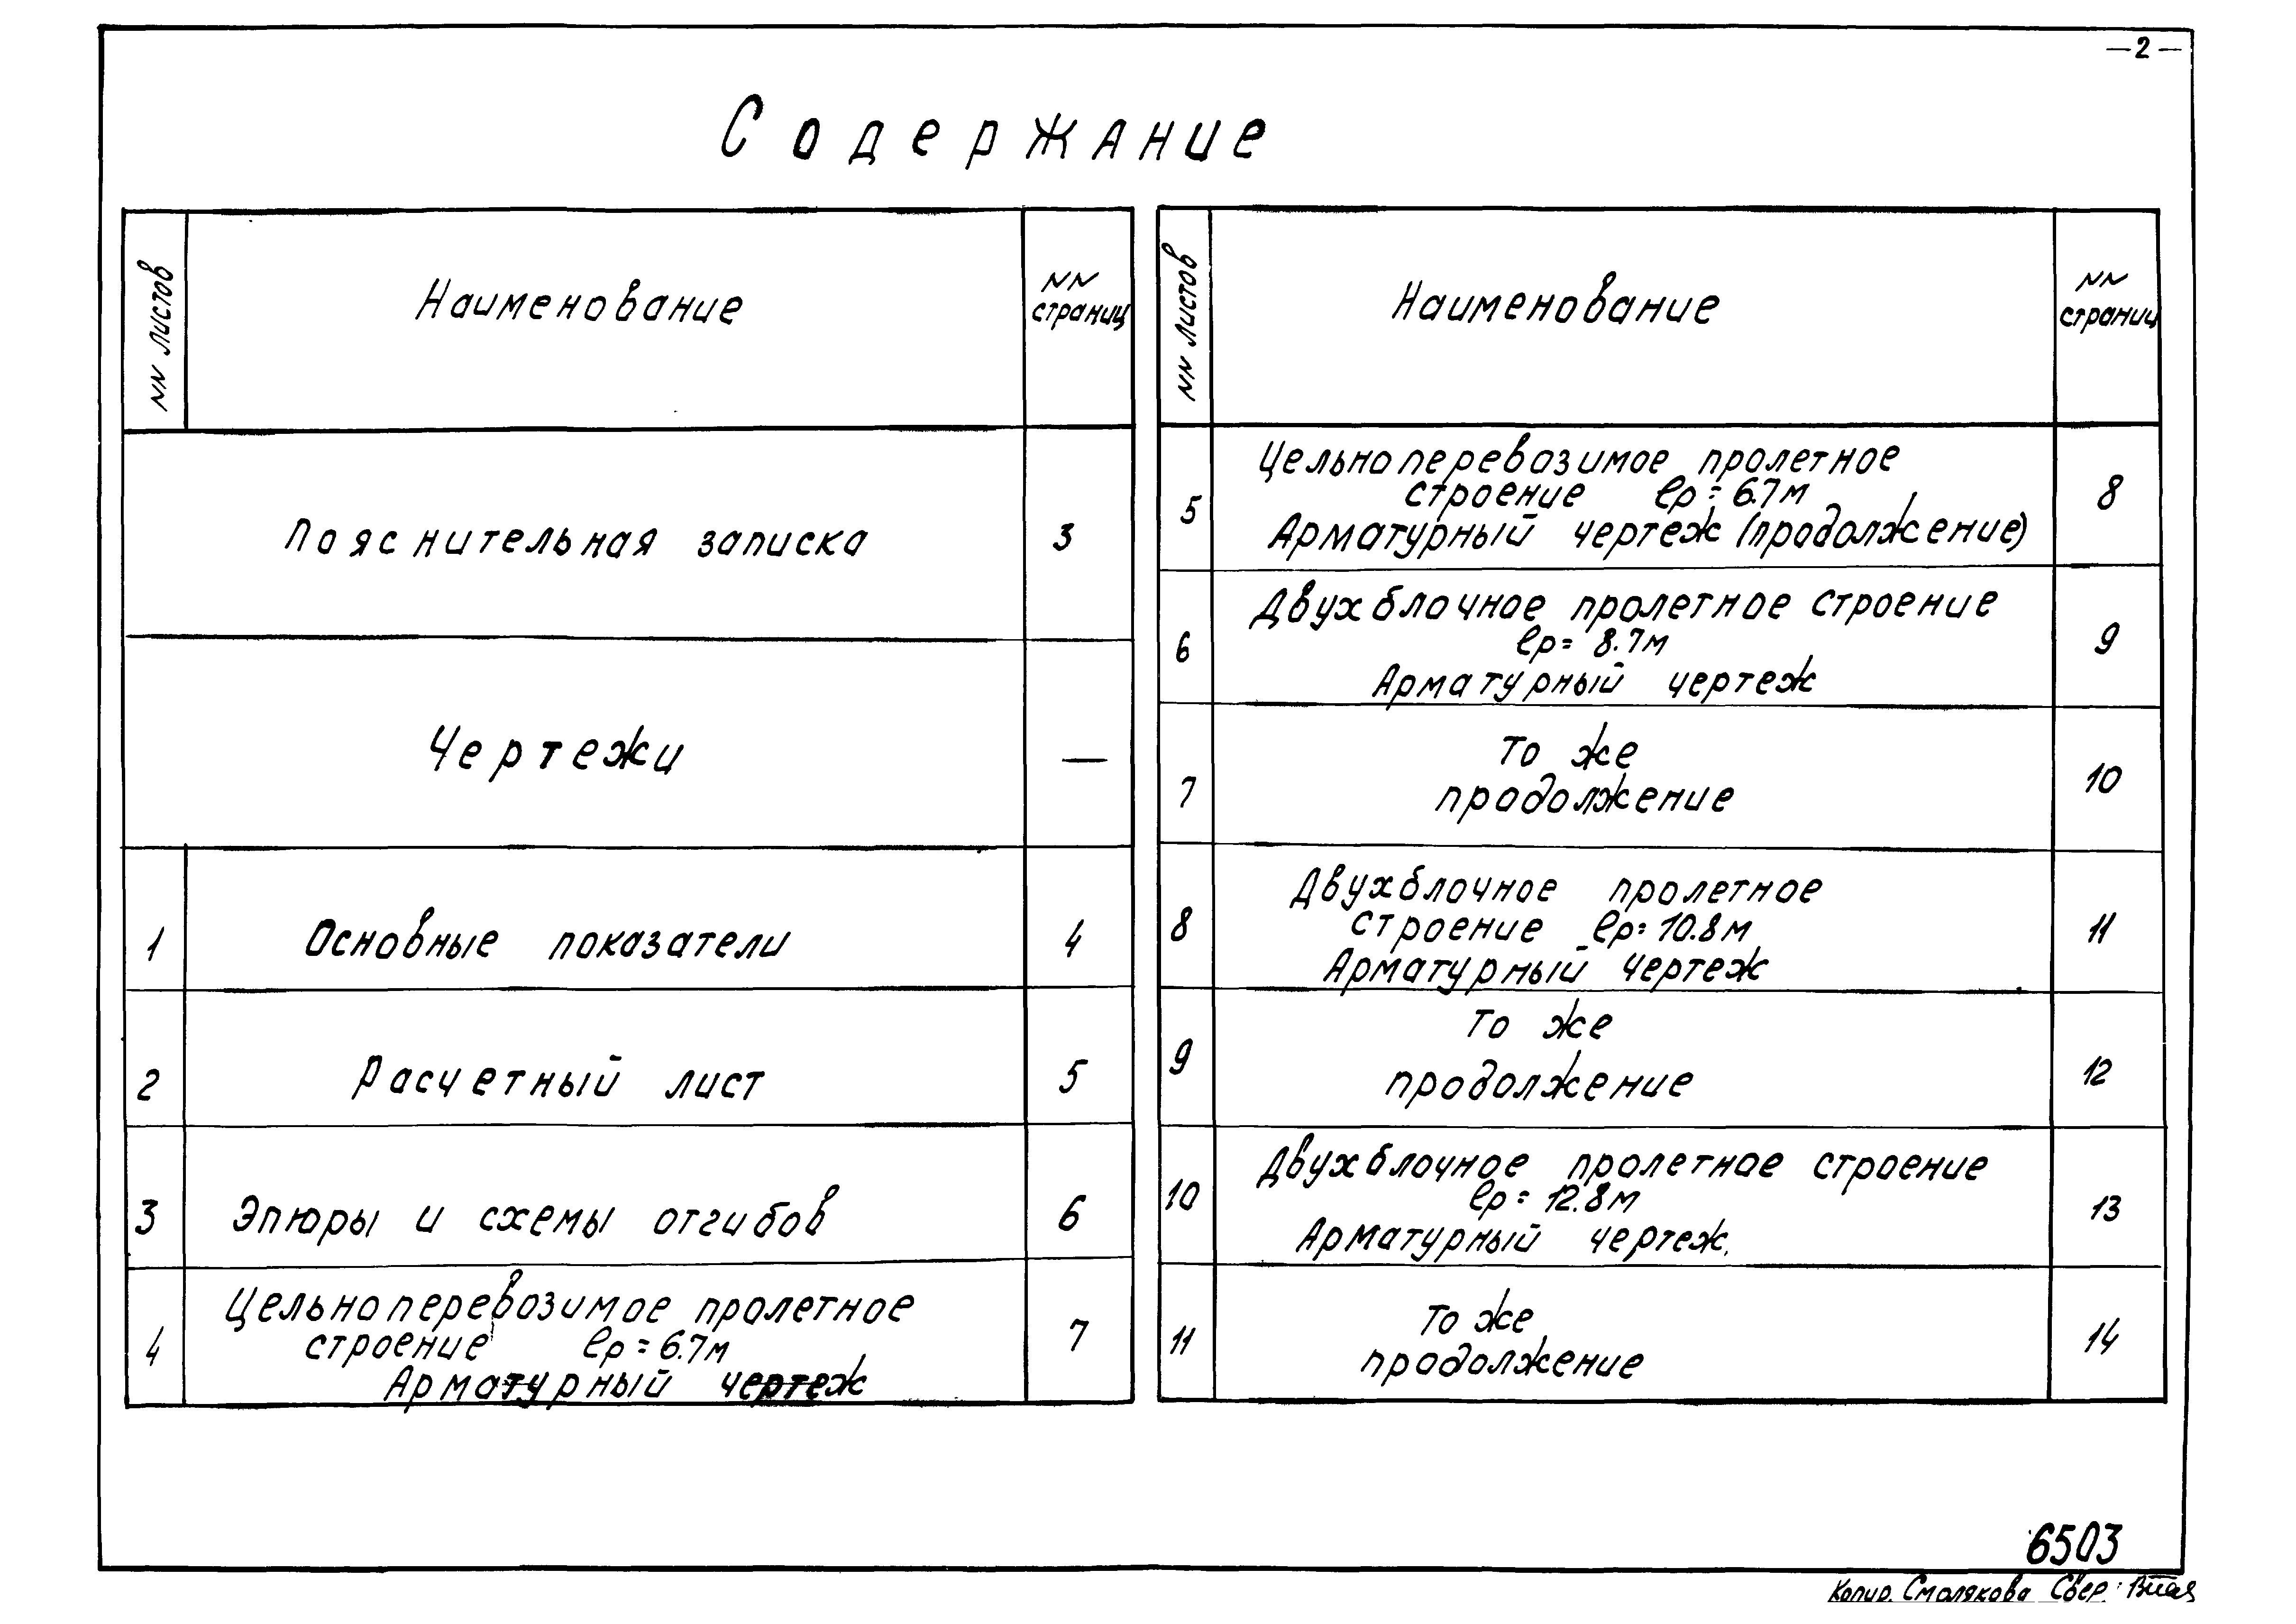 — 2 —
Содержание
NN листов
Наименование
NN
страниц
Пояснительная записка
3
Чертежи
—
1
Основные показатели
4
2
Расчетный лист
5
3
Эпюры и схемы отгибов
6
4
Цельноперевозимое пролетное
строение ℓр = 6.7м
Арматурный чертеж
7
NN листов
Наименование
NN
страниц
5
Цельноперевозимое пролетное
строение ℓр = 6.7м
Арматурный чертеж (продолжение)
8
6
Двухблочное пролетное строение
ℓр = 8.7м
Арматурный чертеж
9
7
То же
продолжение
10
8
Двухблочное пролетное
строение ℓр = 10.8м
Арматурный чертеж
11
9
То же
продолжение
12
10
Двухблочное пролетное строение
ℓр = 12.8м
Арматурный чертеж.
13
11
То же
продолжение
14
6503
Копир. Смолякова Свер: